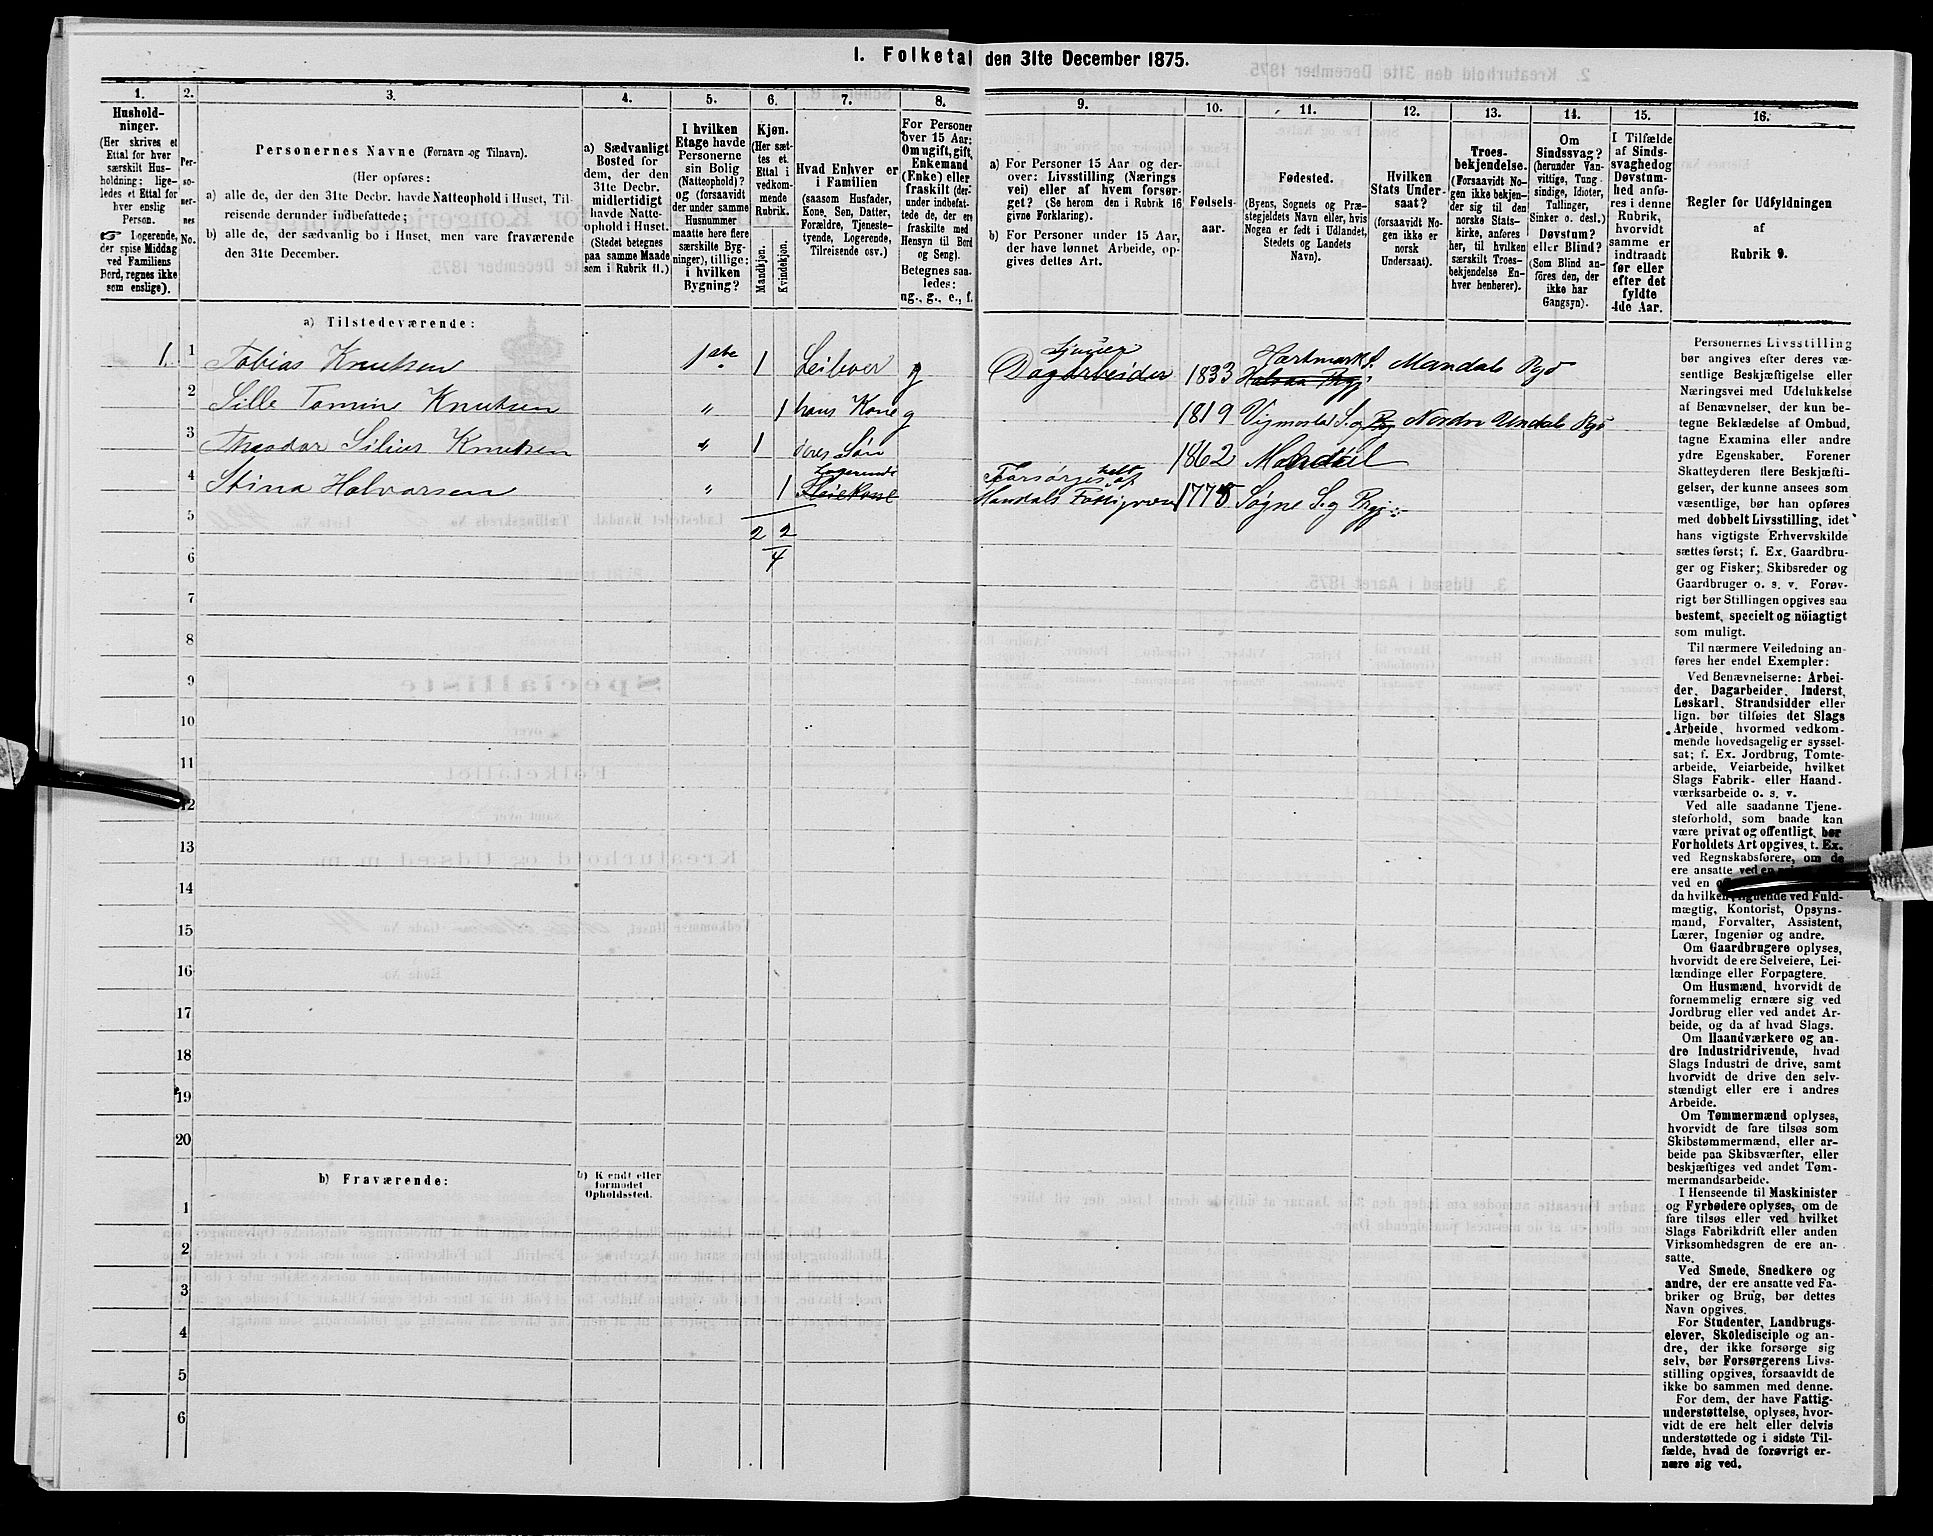 I. Folketal den 31te December 1875.
1. 2. 3. 4. 5. 6. 7. 8. 9. 10. 11. 12. 13. 14. 15. 16.
Hushold-
ninger.
(Her skrives et
Ettal for hver
særskilt Hus-
holdning; lige-
ledes et Ettal for
hver enslig
Person.
☞ Logerende,
der spise Middag
ved Familiens
Bord, regnes ikke
som enslige).
Per-
so-
ner-
nes
No.
Personernes Navne (Fornavn og Tilnavn).
(Her opføres:
a) alle de, der den 31te Decbr. havde Natteophold i Huset, Til-
reisende derunder indbefattede;
b) alle de, der sædvanlig bo i Huset, men vare fraværende
den 31te December.
a) Sædvanligt
Bosted for
dem, der den
31te Decbr.
midlertidigt
havde Natte-
ophold i Huset.
(Stedet betegnes
paa samme Maade
som i Rubrik 11.)
I hvilken
Etage havde
Personerne
sin Bolig
(Natteophold)?
og (forsaavidt
der under samme
Husnummer
maatte høre flere
særskilte Byg-
ninger), tillige:
i hvilken
Bygning?
Kjøn.
(Her sæt-
tes et
Ettal i
vedkom-
mende
Rubrik.
Mandkjøn.
Kvindekjøn.
Hvad Enhver er
i Familien
(saasom Husfader,
Kone, Søn, Datter,
Forældre, Tjeneste-
tyende, Logerende,
Tilreisende osv.)
For Personer
over 15 Aar:
Om ugift, gift,
Enkemand
(Enke) eller
fraskilt (der-
under indbefat-
tede de, der ere
fraskilte med
Hensyn til Bord
og Seng).
Betegnes saa-
ledes:
ug., g., e., f.
a) For Personer 15 Aar og der-
over: Livsstilling (Nærings
vei) eller af hvem forsør-
get? (Se herom den i Rubrik 16
givne Forklaring).
b) For Personer under 15 Aar,
der have lønnet Arbeide, op-
gives dettes Art.
Fødsels-
aar.
Fødested.
(Byens, Sognets og Præ-
stegjeldets Navn eller, hvis
Nogen er født i Udlandet,
Stedets og Landets
Navn).
Hvilken
Stats Under-
saat?
(forsaavidt No-
gen ikke er
norsk
Undersaat).
Troes-
bekjendelse.
(Forsaavidt No-
gen ikke bekjen-
der sig til den
norske Stats-
kirke, anføres
her, til hvilken
særskilt Troes-
bekjendelse En-
hver henhører).
Om
Sindssvag?
(herunder Van-
vittige, Tung
sindige, Idioter,
Tullinger,
Sinker o. desl.)
Døvstum?
eller Blind?
(Som Blind an-
føres den, der
ikke har
Gangsyn).
I Tilfælde
af Sinds-
svaghed og
Døvstum-
hed anfø-
res i denne
Rubrik,
hvorvidt
samme er
indtraadt
før eller
efter det
fyldte
4de Aar.
Regler for Udfyldningen
af
Rubrik 9.
a) Tilstedeværende:
1. 1 Tobias Knutsen 1ste 1 Leiboer g Sjouer Dagarbeider 1833 Hartmark S. Mandals Pgd
2 Sille Tomine Knutsen " 1 hans Kone g 1819 Vigmostad S. og Pg Nordre Undals Pgd
3 Theodor Silius Knutsen " 1 deres Søn 1862 Mandal
4 Stina Halvorsen " 1 Logerende Forsørges helt af
Mandals Fattigvæsen 1775 Søgne S. og Pgj.
5 2 2
6 4
7
8
9
10
11
12
13
14
15
16
17
18
19
20
b) Fraværende:
b) Kjendt eller
formodet
Opholdssted.
1
2
3
4
5
6
Personernes Livsstilling
bør angives efter deres væ-
sentlige Beskjæftigelse eller
Næringsvei med Udelukkelse
af Benævnelser, der kun be-
tegne Beklædelse af Ombud,
tagne Examina eller andre
ydre Egenskaber. Forener
Skatteyderen flere Beskjæfti-
gelser, der kunne ansees som
væsentlige, bør han opføres
med dobbelt Livsstilling, idet
hans vigtigste Erhvervskilde
sættes først; f. Ex. Gaardbru-
ger og Fisker; Skibsreder og
Gaardbruger o. s. v. Forøv-
rigt bør Stillingen opgives saa
bestemt, specielt og nöiagtigt
som muligt.
Til nærmere Veiledning an-
føres her endel Exempler:
Ved Benævnelserne: Arbei-
der, Dagarbeider, Inderst,
Løskarl, Strandsidder eller
lign. bør tilføies det Slags
Arbeide, hvormed vedkom-
mende hovedsagelig er syssel-
sat; f. Ex. Jordbrug, Tomte-
arbeide, Veiarbeide, hvilket
Slags Fabrik- eller Haand-
værksarbeide o. s. v.
Ved alle saadanne Tjene-
steforhold, som baade kan
være privat og offentligt, bør
Forholdets Art opgives, t. Ex.
ved Regnskabsførere, om de
ere ansatte ved en
ved en
da hvilken; lignende ved Fuld-
mægtig, Kontorist, Opsyns-
mand, Forvalter, Assistent,
Lærer, Ingeniør og andre.
Om Gaardbrugere oplyses,
hvorvidt de ere Selveiere, Lei-
lændinge eller Forpagtere.
Om Husmænd, hvorvidt de
fornemmelig ernære sig ved
Jordbrug eller ved andet Ar-
beide, og da af hvad Slags.
Om Haandværkere og an-
dre Industridrivende, hvad
Slags Industri de drive, samt
hvorvidt de drive den selv-
stændigt eller ere i andres
Arbeide.
Om Tømmermænd oplyses,
hvorvidt de fare tilsøs som
Skibstømmermænd, eller ar-
beide paa Skibsværfter, eller
beskjæftiges ved andet Tøm-
mermandsarbeide.
I Henseende til Maskinister
og Fyrbødere oplyses, om de
fare tilsøs eller ved hvilket
Slags Fabrikdrift eller anden
Virksomhedsgren de ere an-
satte.
Ved Smede, Snedkere og
andre, der ere ansatte ved Fa-
briker og Brug, bør dettes
Navn opgives.
For Studenter, Landbrugs-
elever, Skoledisciple og an-
dre, der ikke forsørge sig
selv, bør Forsørgerens Livs-
stilling opgives, forsaavidt de
ikke bo sammen med denne.
For dem, der have Fattig-
understøttelse, oplyses, hvor-
vidt de ere helt eller delvis
understøttede og i sidste Til-
fælde, hvad de forøvrigt er-
nære sig ved.